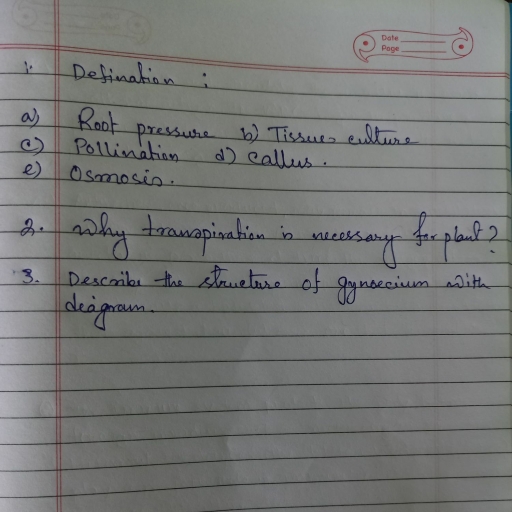 Date
Page
1. Defination :
a) Root pressure b) Tissues culture
c) Pollination d) callus.
e) Osmosis.
2. Why transpiration is necessary for plant?
3. Describe the structure of gynoecium with
deagram.